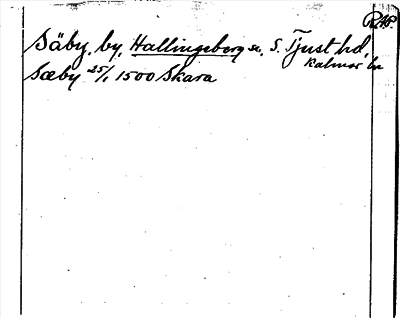 Säby, by, Hallingeberg sn, S. Tjust hd,
Kalmar ln
Sæby 25/1 1500 Skara